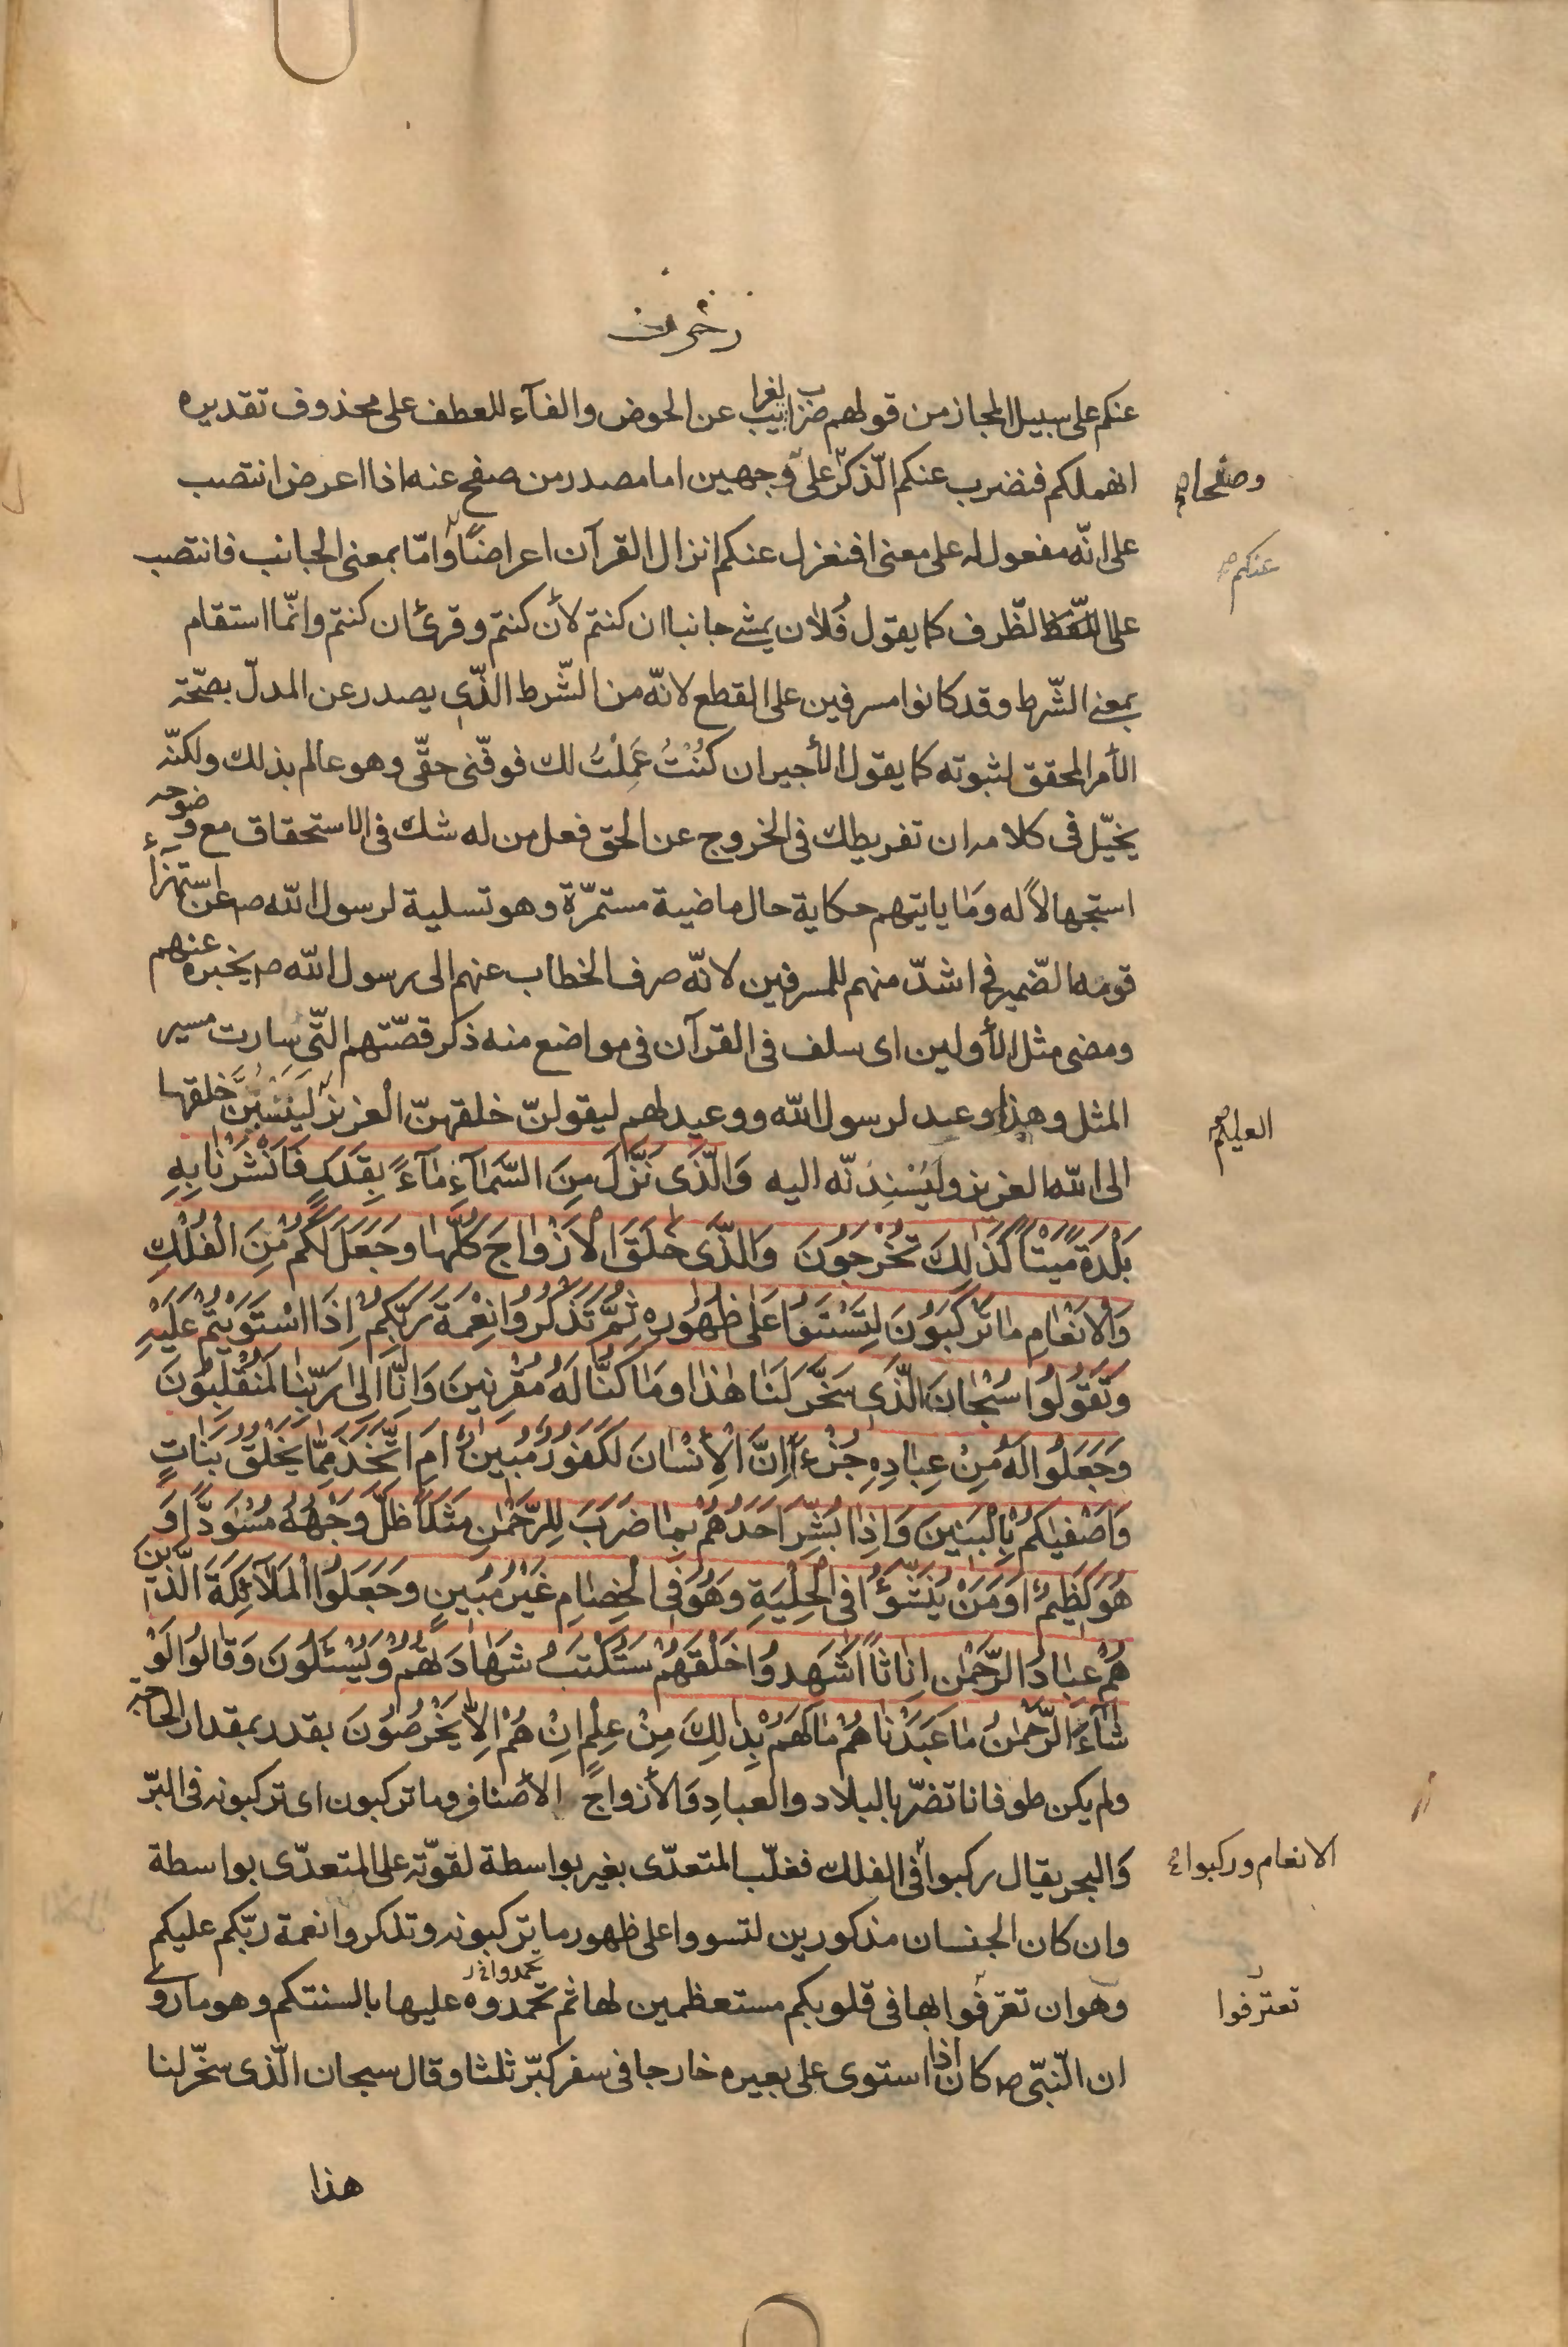 زخرف
عنكم على سبيل المجاز من قولهم ضرب الغرايب عن الحوض والفآء للعطف على محذوف تقديره
انهملكم فنضرب عنكم الّذكر على وجهين اما مصدر من صفح عنه اذا اعرض انتصب
وصفحا
على انّه مفعول له على معنى افنعزل عنكم انزال القرآن اعراضًا وامّا بمعنى الجانب فانتصب
عنكم
على الظّرف كما يقول فُلان يمشى جانبا ان كنتم لأن كنتم وقرئ ان كنتم وانّما استقام
بمعنى الشّرط وقد كانوا مسرفين على القطع لانّه من الشّرط الذّى يصدر عن المدلّ بصّحة
الأمر المحقق لثبوته كما يقول الأجير ان كُنْتُ عَمِلْتُ لك فوفّنى حقّى وهو عالم بذلك ولكنّه
يخيّل فى كلامه ان تفريطك فى الخروج عن الحق فعل من له شك فى الاستحقاق مع وضوحه
استجهالاً له وَمَا ياتيهم حكاية حال ماضية مستمرّة وهو تسلية لرسول اللّه ص عن استهزاء
قومه الضّمير فى اشدّ منهم للمسرفين لانّه صرف الخطاب عنهم الى رسول اللّه ص يخبره عنهم
ومضى مثل الأولين اى سلف فى القرآن فى مواضع منه ذكر قصّتهم التّى سارت مسير
المثل وهذا وعد لرسول اللّه ووعيد لهم ليقولنّ خلقهنّ العزيز لينسبنّ خلقها
العليم
الى اللّه العزيز وليُسْنِدنّه اليه وَالّذَى نَزَّلَ مِنَ السَّمآءِ مٰآءً بِقَدَرٍ فَاَنْشَرْنٰا بِهِ
بَلْدَةً مَيْتًا كَذٰلِكَ تُخْرَجُونَ وَالَّذى خَلَقَ الْاَزْوٰاجَ كُلَّهٰا وَجَعَلَ لَكُمْ مِنَ الْفُلْكِ
وَالْاَنْعٰامِ مٰا تَرْكَبُونَ لِتَسْتَوُا عَلٰى ظُهُورِهِ ثُمَّ تَذْكُرُوا نِعْمَةَ رَبِّكُمْ اِذَا اسْتَوَيْتُمْ عَلَيْهِ
وَتَقُولُوا سُبْحٰانَ الَّذى سَخَّرَ لَنٰا هٰذٰا وَمٰا كُنّٰا لَهُ مُقْرِنينَ وَاِنّٰا اِلٰى رَبِّنٰا لَمُنْقَلِبُونَ
وَجَعَلُوا لَهُ مِنْ عِبٰادِهِ جُزْءاً اِنَّ الْاِنْسٰانَ لَكَفُورٌ مُبينٌ اَمِ اتَّخَذَ مِمّٰا يَخْلُقُ بَنٰاتٍ
وَاَصْفٰيكُمْ بِالْبَنينَ وَاِذٰا بُشِّرَ اَحَدُهُمْ بِمٰا ضَرَبَ لِلرَّحْمٰنِ مَثَلاً ظَلَّ وَجْهُهُ مُسْوَدًّا وَ
هُوَ كَظيمٌ اَوَمَنْ يُنَشَّؤُا فِى الْحِلْيَةِ وَهُوَ فِى الْخِصٰامِ غَيْرُ مُبينٍ وَجَعَلُوا الْمَلآئِكَةَ الَّذينَ
هُمْ عِبٰادُ الرَّحْمٰنِ اِنٰاثًا اَشَهِدُوا خَلْقَهُمْ سَتُكْتَبُ شَهٰادَتُهُمْ وَيُسْئَلُونَ وَقٰالُوا لَوْ
شٰآءَ الرَّحْمٰنُ مٰا عَبَدْنٰاهُمْ مٰا لَهُمْ بِذٰلِكَ مِنْ عِلْمٍ اِنْ هُمْ اِلّٰا يَخْرُصُونَ بقدر بمقدار الحاجة
ولم يكن طوفانا تضرّ بالبلاد والعبادِ وَالأزواجَ الأصناف وما تركبون اى تركبونه فى البرّ
وَالبحر يقال ركبوا فى الفلك فغلّب المتعدّى بغير بواسطة لقوّته على المتعدّى بواسطة
الانعام وركبوا
وان كان الجنسان مذكورين لتسووا على ظهور ما تركبونه وتذكروا نعمة ربّكم عليكم
وهو ان تعرّفوا بها فى قلوبكم مستعظمين لها ثم تحمدوه عليها بالسنتكم وهو ما روى
تعترفوا
تحمدوا
ان النّبّى ص كان اذا استوى على بعيره خارجا فى سفر كبّر ثلثا وقال سبحان الّذى سخّر لنا
هذا